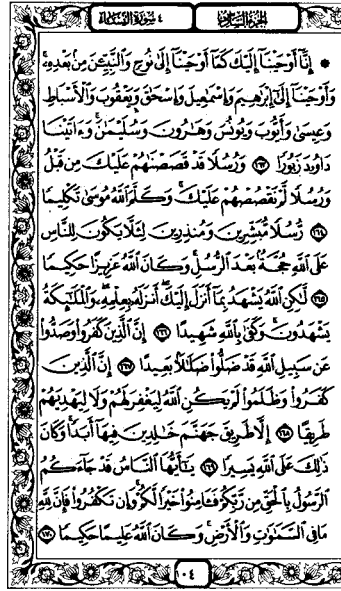 الجزء السادس
٤ سورة النساء
۞ إِنَّآ أَوْحَيْنَآ إِلَيْكَ كَمَآ أَوْحَيْنَآ إِلَىٰ نُوحٍ وَٱلنَّبِيِّـۧنَ مِنۢ بَعْدِهِۦۚ
وَأَوْحَيْنَآ إِلَىٰٓ إِبْرَٰهِيمَ وَإِسْمَٰعِيلَ وَإِسْحَٰقَ وَيَعْقُوبَ وَٱلْأَسْبَاطِ
وَعِيسَىٰ وَأَيُّوبَ وَيُونُسَ وَهَٰرُونَ وَسُلَيْمَٰنَۚ وَءَاتَيْنَا
دَاوُۥدَ زَبُورًا ١٦٣ وَرُسُلًا قَدْ قَصَصْنَٰهُمْ عَلَيْكَ مِن قَبْلُ
وَرُسُلًا لَّمْ نَقْصُصْهُمْ عَلَيْكَۚ وَكَلَّمَ ٱللَّهُ مُوسَىٰ تَكْلِيمًا
١٦٤ رُّسُلًا مُّبَشِّرِينَ وَمُنذِرِينَ لِئَلَّا يَكُونَ لِلنَّاسِ
عَلَى ٱللَّهِ حُجَّةٌۢ بَعْدَ ٱلرُّسُلِۚ وَكَانَ ٱللَّهُ عَزِيزًا حَكِيمًا
١٦٥ لَّٰكِنِ ٱللَّهُ يَشْهَدُ بِمَآ أَنزَلَ إِلَيْكَۖ أَنزَلَهُۥ بِعِلْمِهِۦۖ وَٱلْمَلَٰٓئِكَةُ
يَشْهَدُونَۚ وَكَفَىٰ بِٱللَّهِ شَهِيدًا ١٦٦ إِنَّ ٱلَّذِينَ كَفَرُوا۟ وَصَدُّوا۟
عَن سَبِيلِ ٱللَّهِ قَدْ ضَلُّوا۟ ضَلَٰلًۢا بَعِيدًا ١٦٧ إِنَّ ٱلَّذِينَ
كَفَرُوا۟ وَظَلَمُوا۟ لَمْ يَكُنِ ٱللَّهُ لِيَغْفِرَ لَهُمْ وَلَا لِيَهْدِيَهُمْ
طَرِيقًا ١٦٨ إِلَّا طَرِيقَ جَهَنَّمَ خَٰلِدِينَ فِيهَآ أَبَدًاۚ وَكَانَ
ذَٰلِكَ عَلَى ٱللَّهِ يَسِيرًا ١٦٩ يَٰٓأَيُّهَا ٱلنَّاسُ قَدْ جَآءَكُمُ
ٱلرَّسُولُ بِٱلْحَقِّ مِن رَّبِّكُمْ فَـَٔامِنُوا۟ خَيْرًا لَّكُمْۚ وَإِن تَكْفُرُوا۟ فَإِنَّ لِلَّهِ
مَا فِى ٱلسَّمَٰوَٰتِ وَٱلْأَرْضِۚ وَكَانَ ٱللَّهُ عَلِيمًا حَكِيمًا ١٧٠
١٠٤